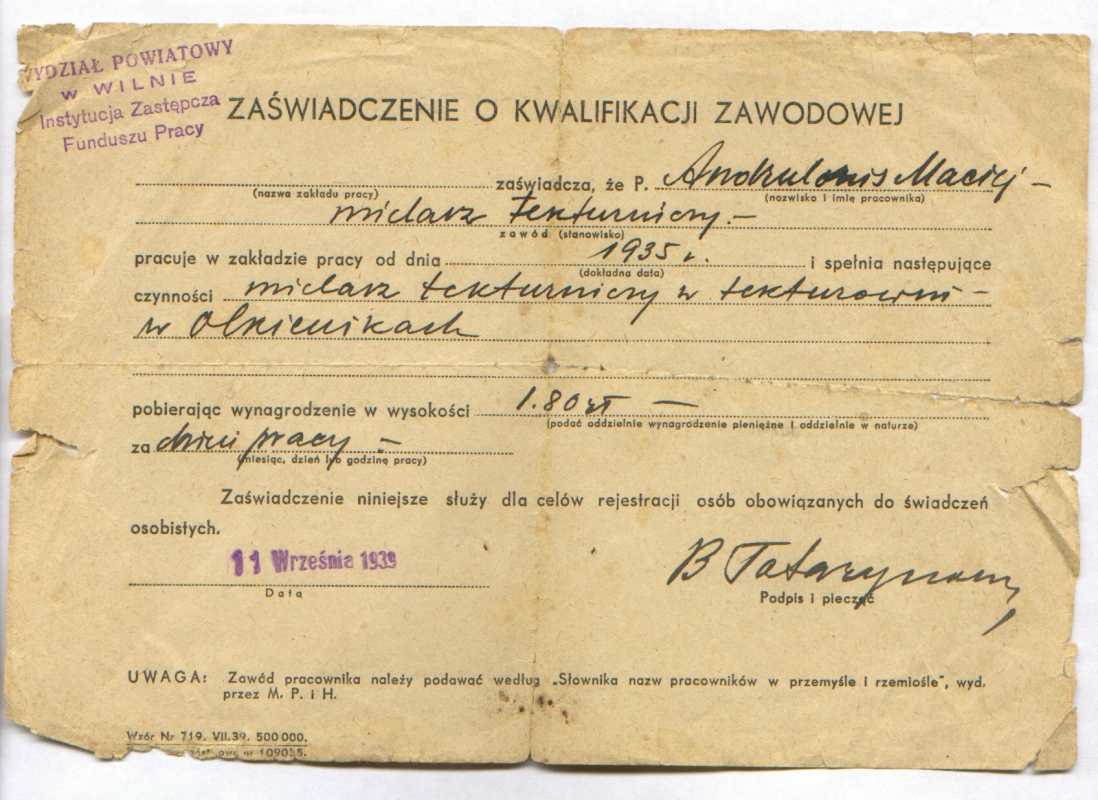 WYDZIAŁ POWIATOWY
w WILNIE
Instytucja Zastępcza
Funduszu Pracy
ZAŚWIADCZENIE O KWALIFIKACJI ZAWODOWEJ
zaświadcza, że P. Andrulonis Maciej –
(nazwa zakładu pracy) (nazwisko i imię pracownika)
mielarz tekturniczy. –
zawód (stanowisko)
pracuje w zakładzie pracy od dnia 1935 r. i spełnia następujące
(dokładna data)
czynności mielarz tekturniczy w tekturowni –
w Olkienikach
pobierając wynagrodzenie w wysokości 1.80 zł –
(podać oddzielnie wynagrodzenie pieniężne i oddzielnie w naturze)
za dzień pracy –
(miesiąc, dzień lub godzinę pracy)
Zaświadczenie niniejsze służy dla celów rejestracji osób obowiązanych do świadczeń
osobistych.
11 Września 1939
Data
B
Podpis i pieczęć
UWAGA: Zawód pracownika należy podawać według „Słownika nazw pracowników w przemyśle i rzemiośle", wyd.
przez M. P. i H.
Wzór Nr 719. VII.39. 500 000.